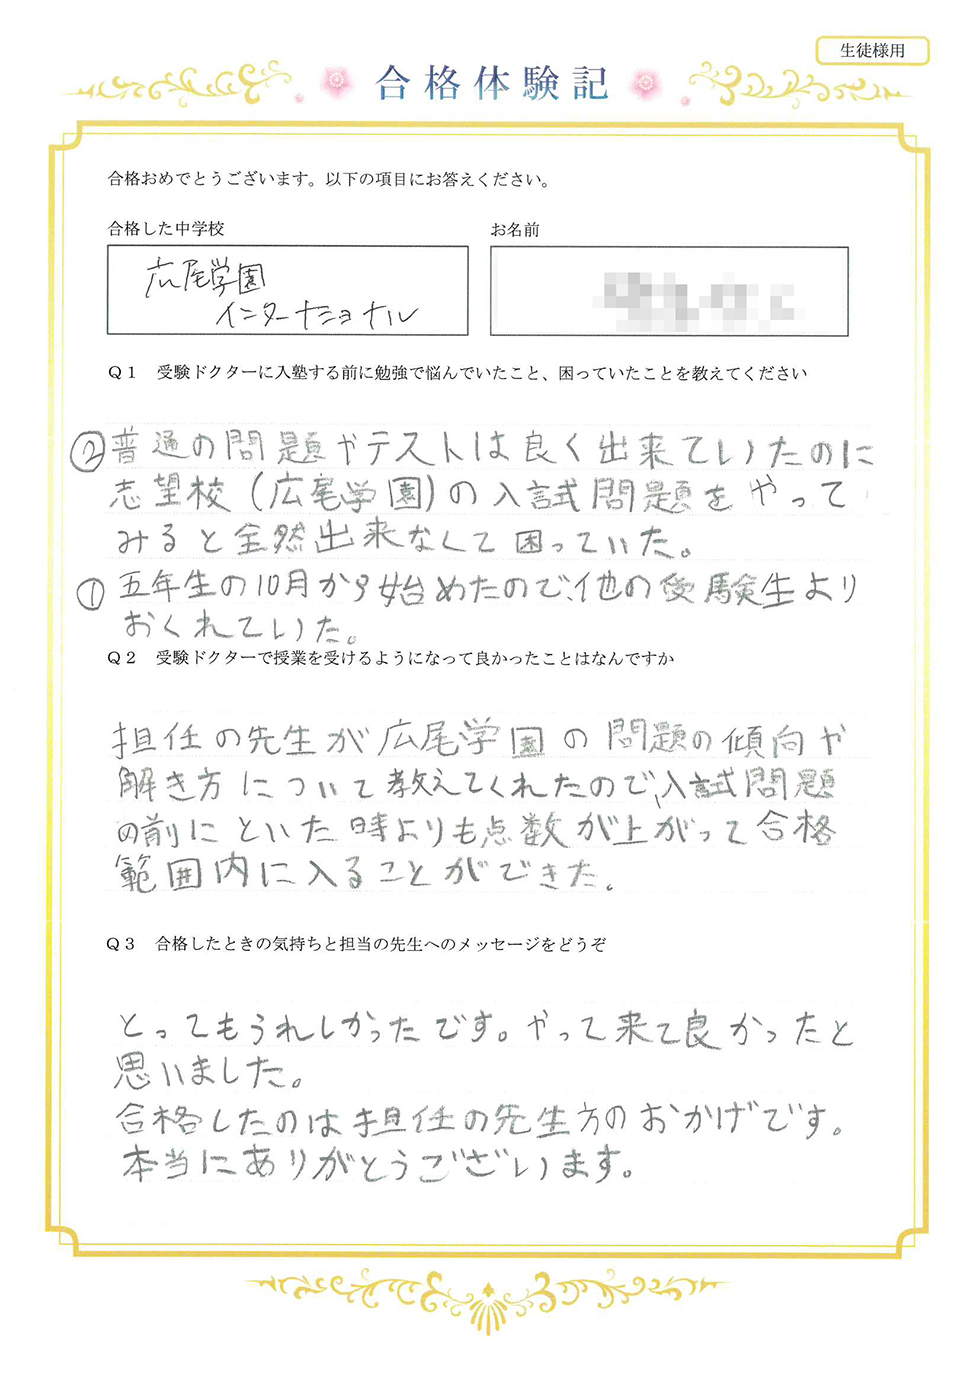 生徒様用
合格体験記
合格おめでとうございます。以下の項目にお答えください。
合格した中学校
お名前
広尾学園
インターナショナル
Q1 受験ドクターに入塾する前に勉強で悩んでいたこと、困っていたことを教えてください
②普通の問題やテストは良く出来ていたのに
志望校(広尾学園)の入試問題をやって
みると全然出来なくて困っていた。
①五年生の10月から始めたので、他の受験生より
おくれていた。
Q2 受験ドクターで授業を受けるようになって良かったことはなんですか
担任の先生が広尾学園の問題の傾向や
解き方について教えてくれたので、入試問題
の前にといた時よりも点数が上がって合格
範囲内に入ることができた。
Q3 合格したときの気持ちと担当の先生へのメッセージをどうぞ
とってもうれしかったです。やって来て良かったと
思いました。
合格したのは担任の先生方のおかげです。
本当にありがとうございます。